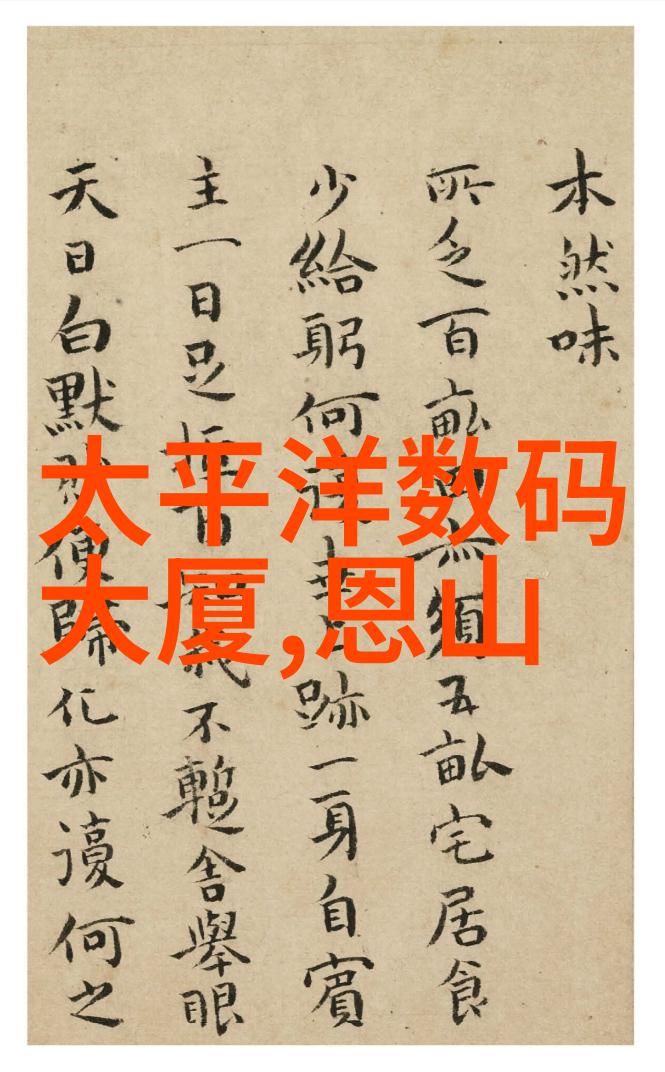 本然味
所乏百畝無須五畝宅居食
少給躬何跡一身自賓
主一日足不蹔舍舉眼
天日白默便歸化亦謾何之
太平洋数码
大厦,恩山